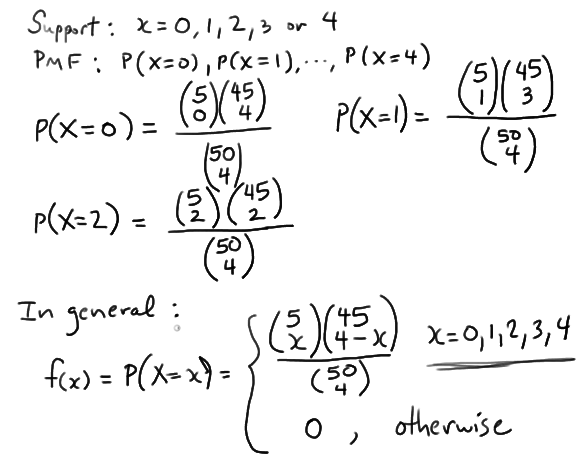 Support: x = 0, 1, 2, 3 or 4
PMF: P(X=0), P(X=1), ..., P(X=4)
P(X=0) = \frac{\binom{5}{0}\binom{45}{4}}{\binom{50}{4}} P(X=1) = \frac{\binom{5}{1}\binom{45}{3}}{\binom{50}{4}}
P(X=2) = \frac{\binom{5}{2}\binom{45}{2}}{\binom{50}{4}}
In general:
f(x) = P(X=x) = \begin{cases} \frac{\binom{5}{x}\binom{45}{4-x}}{\binom{50}{4}} & x=0,1,2,3,4 \\ 0, & otherwise \end{cases}